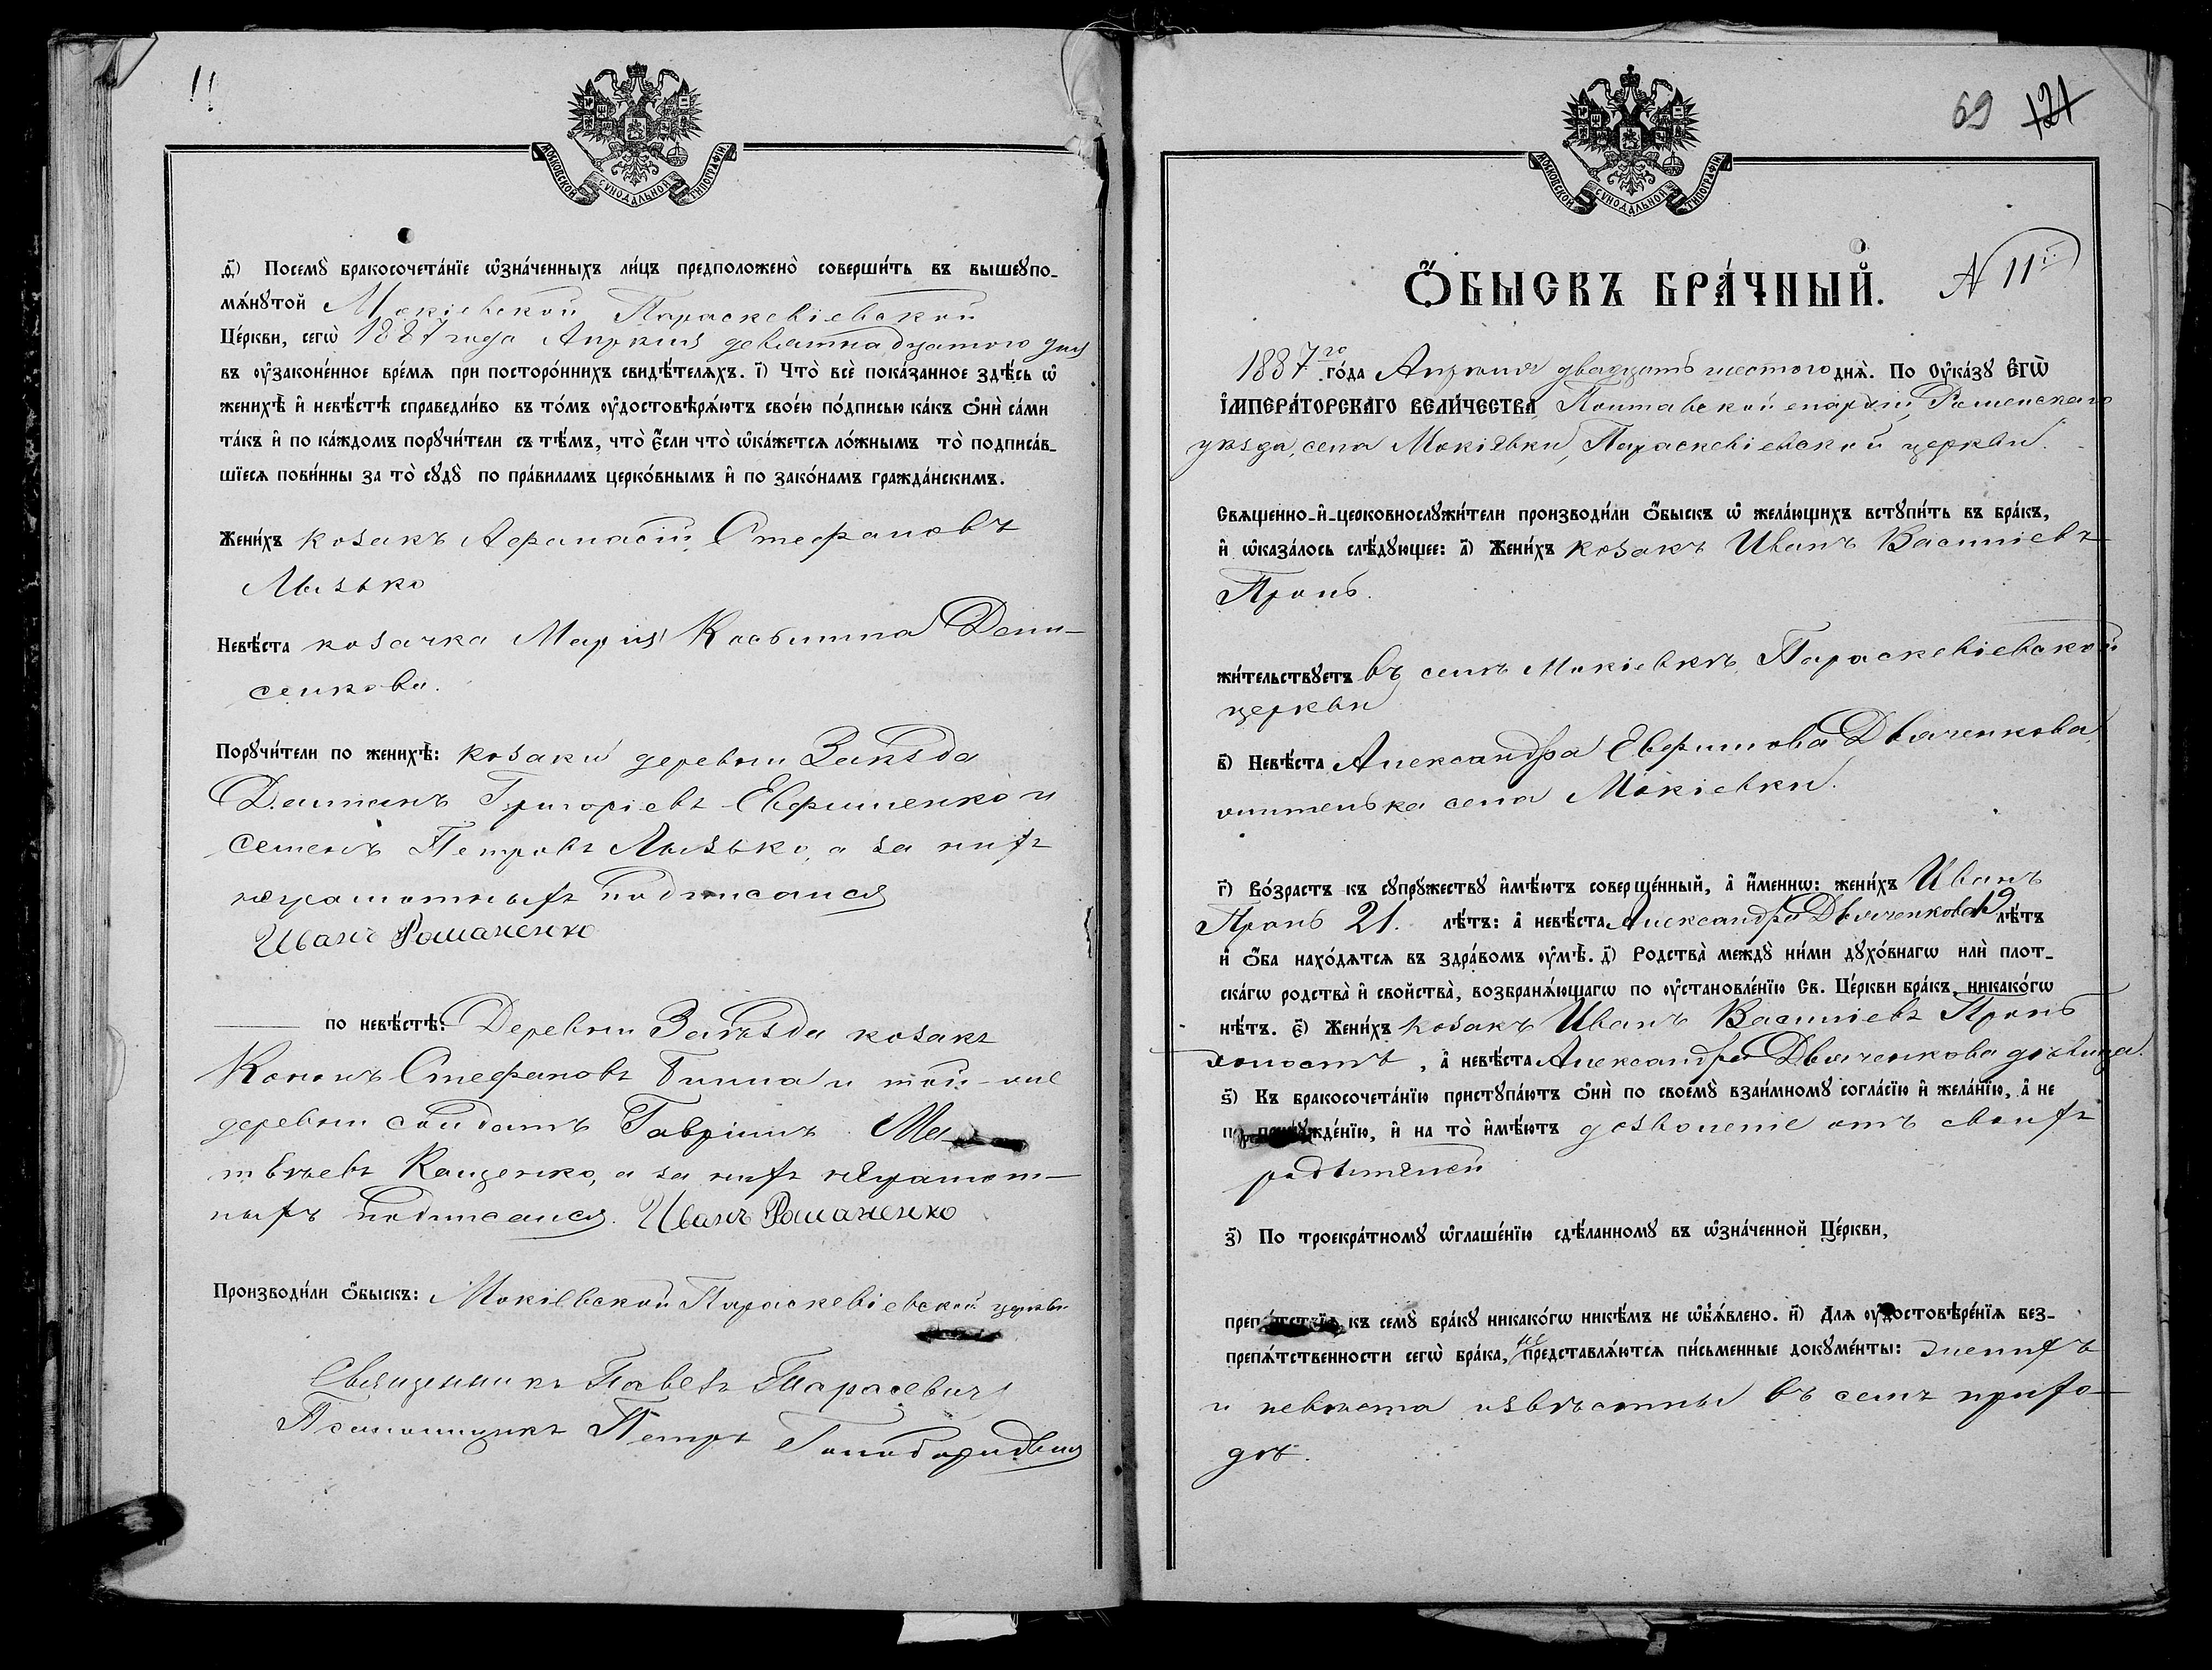 11
МОСКОВСКОЙ СѴНОДАЛЬНОЙ ТИПОГРАФІИ
д҃) Посемꙋ̀ бракосочета́нїе ѡ҆зна́ченныхъ ли́цъ предположено̀ соверши́ть въ вышеꙋпо-
мѧ́нꙋтой Мокіевской Параскевіевской
Це́ркви, сегѡ̀ 1887 года Апрѣля девятнадцатого дня
въ ᲂу҆законе́нное вре́мѧ при посторо́ннихъ свидѣ́телѧхъ. і҃) Что̀ всѐ пока́занное здѣ́сь ѡ҆
женихѣ̀ и҆ невѣ́стѣ справедли́во въ то́мъ ᲂу҆достовѣрѧ́ютъ свое́ю по́дписью ка́къ ѻ҆нѝ са́ми
та́къ и҆ по ка́ждомъ порꙋчи́тели съ тѣ́мъ, что̀ є҆́сли что̀ ѡ҆ка́жетсѧ ло́жнымъ то̀ подписа́в-
шїесѧ пови́нны за то̀ сꙋдꙋ̀ по пра́виламъ церко́внымъ и҆ по зако́намъ гражда́нскимъ.
Жени́хъ козакъ Афанасій Стефановъ
Лызько
Невѣ́ста козачка Марія Косьмина Дени-
сенкова.
Порꙋчи́тели по женихѣ̀: козаки деревни Заѣзда
Даміанъ Григоріевъ Евфименко и
Семенъ Петровъ Лызько, а за них
неграмотныхъ подписался
Иванъ Романенко
по невѣ́стѣ: Деревни Заѣзда козакъ
Кононъ Стефановъ Билиа и той-же
деревни солдатъ Гавріилъ Ма-
твѣевъ Кащенко, а за нихъ неграмот-
ныхъ подписался. Иванъ Романенко
Производи́ли ѻ҆́быскъ: Мокіевской Параскевіевской церкви
Священникъ Павелъ Тарасевичъ
Псаломщикъ Петръ
69 121
МОСКОВСКОЙ СѴНОДАЛЬНОЙ ТИПОГРАФІИ
Ѻ҆́БЫСКЪ БРА́ЧНЫЙ. N 11й
1887го го́да Апрѣля двадцать шестого днѧ̀. По Оу҆ка́зꙋ Є҆гѡ̀
І҆МПЕРА́ТОРСКАГО ВЕЛИ́ЧЕСТВА, Полтавской епархіи, Роменскаго
уѣзда, села Мокіевки, Параскевіевской церкви.
Свѧщенно-и҆-церковнослꙋжи́тели производи́ли ѻ҆́быскъ ѡ҆ жела́ющихъ встꙋпи́ть въ бра́къ,
и҆ ѡ҆каза́лось слѣ́дꙋющее: а҃) Жени́хъ козакъ Иванъ Василіевъ
Пронь.
жи́тельствꙋетъ въ селѣ Мокіевкѣ Параскевіевской
церкви
в҃) Невѣ́ста Александра Евфимова Дьяченкова
жителька села Мокіевки.
г҃) Во́зрастъ къ сꙋпрꙋ́жествꙋ и҆мѣ́ютъ соверше́нный, а҆ и҆́меннѡ: жени́хъ Иванъ
Пронь 21. лѣ́тъ: а҆ невѣ́ста Александра Дьяченкова 19 лѣ́тъ
и҆ ѻ҆́ба нахо́дѧтсѧ въ здра́вомъ ᲂу҆мѣ̀. д҃) Родства̀ междꙋ̀ ни́ми дꙋхо́внагѡ илѝ плот-
ска́гѡ родства̀ и҆ свойства̀, возбранѧ́ющагѡ по ᲂу҆становле́нїю Св. Це́ркви бра́къ, никако́гѡ
нѣ́тъ. є҃) Жени́хъ козакъ Иванъ Василіевъ Пронь
холостъ, а҆ невѣ́ста Александра Дьяченкова дѣвица.
ѕ҃) Къ бракосочета́нїю пристꙋпа́ютъ ѻ҆нѝ по своемꙋ̀ взаи́мномꙋ согла́сїю и҆ жела́нїю, а҆ не
по принꙋжде́нїю, и҆ на то̀ и҆мѣ́ютъ дозволеніе отъ своихъ
родителей
з҃) По троекра́тномꙋ ѡ҆глаше́нїю сдѣ́ланномꙋ въ ѡ҆зна́ченной Це́ркви,
препѧ́тствїѧ къ семꙋ̀ бра́кꙋ никако́гѡ никѣ́мъ не ѡ҆б̾ѧ́влено. и҃) Длѧ ᲂу҆достовѣре́нїѧ без-
препѧ́тственности сегѡ̀ бра́ка, не представлѧ́ютсѧ пи́сьменные докꙋме́нты: женихъ
и невѣста извѣстны въ семъ прихо-
дѣ.